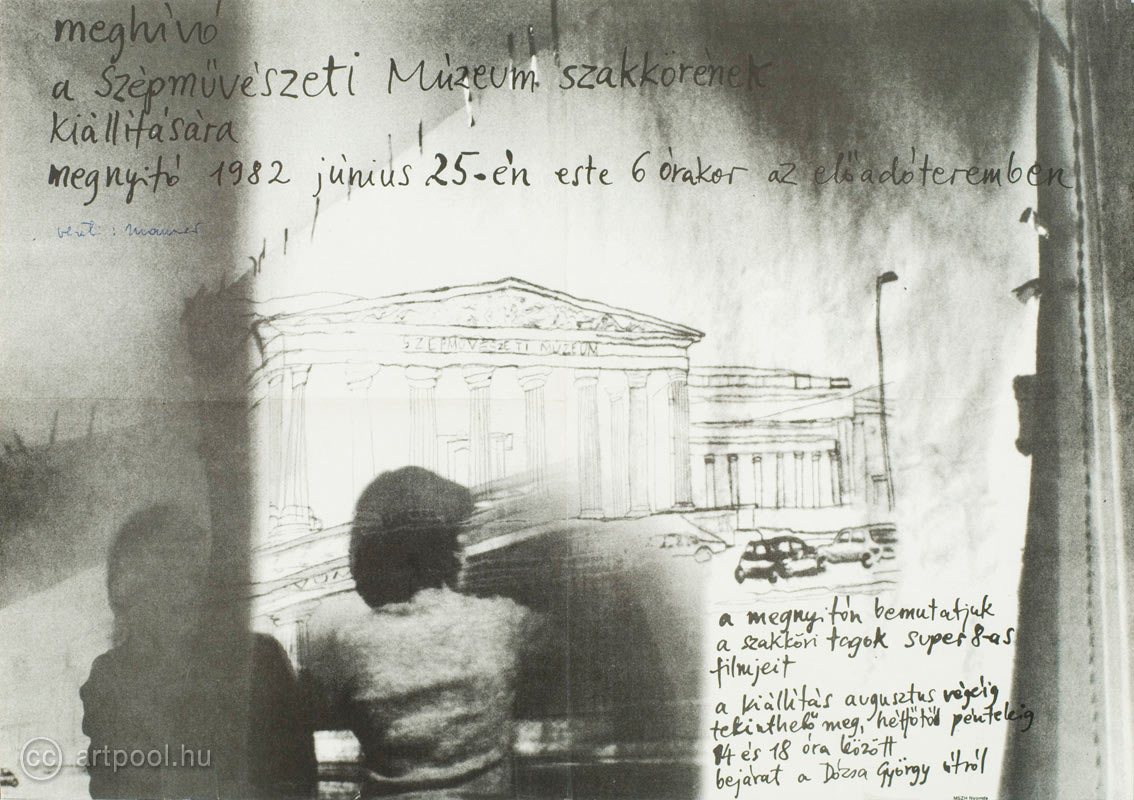 meghívó
a Szépművészeti Múzeum szakkörének
kiállítására
megnyitó 1982 június 25-én este 6 órakor az előadóteremben
SZÉPMŰVÉSZETI MÚZEUM
a megnyitón bemutatjuk
a szakköri tagok super 8-as
filmjeit
a kiállítás augusztus végéig
tekinthető meg, hétfőtől péntekig
14 és 18 óra között
bejárat a Dózsa György útról
cc artpool.hu